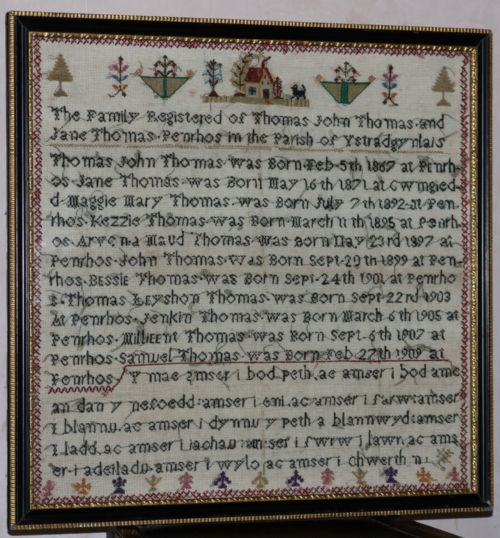 The Family Registered of Thomas John Thomas and
Jane Thomas Penrhos in the Parish of Ystradgynlais
Thomas John Thomas was Born Feb 5th 1867 at Penrh-
os Jane Thomas was Born May 16th 1871 at Cwmgied-
d Maggie Mary Thomas was Born July 7th 1892 at Pen-
rhos Kezzie Thomas was Born March 11th 1895 at Penrh-
os Arvena Maud Thomas was Born May 23rd 1897 at
Penrhos John Thomas was Born Sept 29th 1899 at Pen-
rhos Bessie Thomas was Born Sept 24th 1901 at Penrho
s Thomas Leyshon Thomas was Born Sept 22nd 1903
At Penrhos Jenkin Thomas was Born March 6th 1905 at
Penrhos Millicent Thomas was Born Sept 6th 1907 at
Penrhos Samuel Thomas was Born Feb 27th 1909 at
Penrhos Y mae amser i bod peth ac amser i bod ame
an dan y nefoedd amser i eni ac amser i farw amser
i blannu ac amser i dynnu y peth a blannwyd amser
i ladd ac amser i iachau amser i fwrw i lawr ac ams
er i adeiladu amser i wylo ac amser i chwerthni